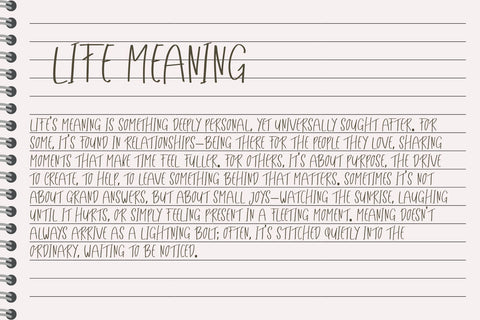 LIFE MEANING
LIFE'S MEANING IS SOMETHING DEEPLY PERSONAL, YET UNIVERSALLY SOUGHT AFTER. FOR
SOME, IT'S FOUND IN RELATIONSHIPS—BEING THERE FOR THE PEOPLE THEY LOVE, SHARING
MOMENTS THAT MAKE TIME FEEL FULLER. FOR OTHERS, IT'S ABOUT PURPOSE, THE DRIVE
TO CREATE, TO HELP, TO LEAVE SOMETHING BEHIND THAT MATTERS. SOMETIMES IT'S NOT
ABOUT GRAND ANSWERS, BUT ABOUT SMALL JOYS—WATCHING THE SUNRISE, LAUGHING
UNTIL IT HURTS, OR SIMPLY FEELING PRESENT IN A FLEETING MOMENT. MEANING DOESN'T
ALWAYS ARRIVE AS A LIGHTNING BOLT; OFTEN, IT'S STITCHED QUIETLY INTO THE
ORDINARY, WAITING TO BE NOTICED.